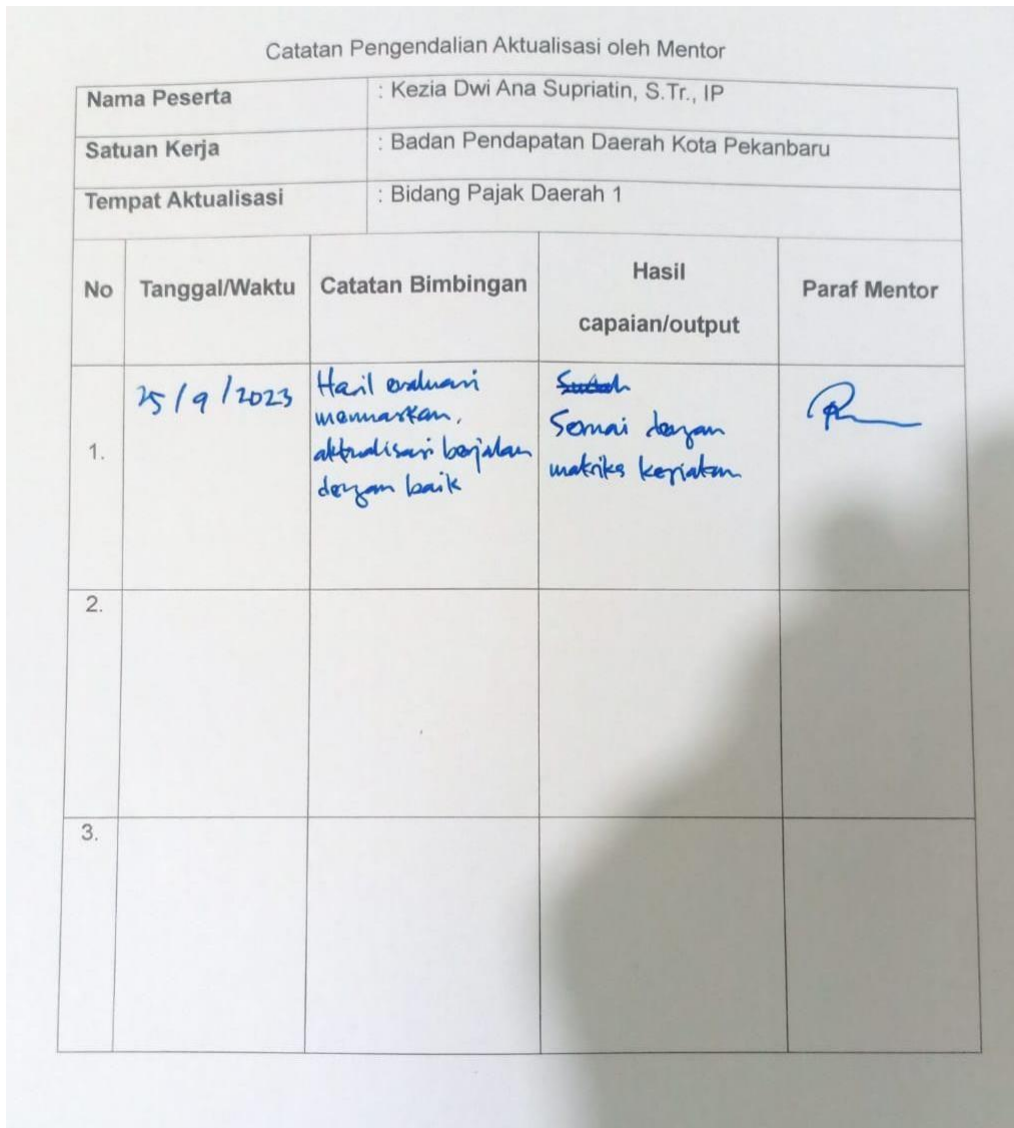 Catatan Pengendalian Aktualisasi oleh Mentor
Nama Peserta : Kezia Dwi Ana Supriatin, S.Tr., IP
Satuan Kerja : Badan Pendapatan Daerah Kota Pekanbaru
Tempat Aktualisasi : Bidang Pajak Daerah 1
No Tanggal/Waktu Catatan Bimbingan Hasil
capaian/output Paraf Mentor
1.
25/9/2023
Hasil evaluasi
memuaskan,
aktualisasi berjalan
dengan baik
Sudah
Sesuai dengan
matriks kegiatan
2.
3.